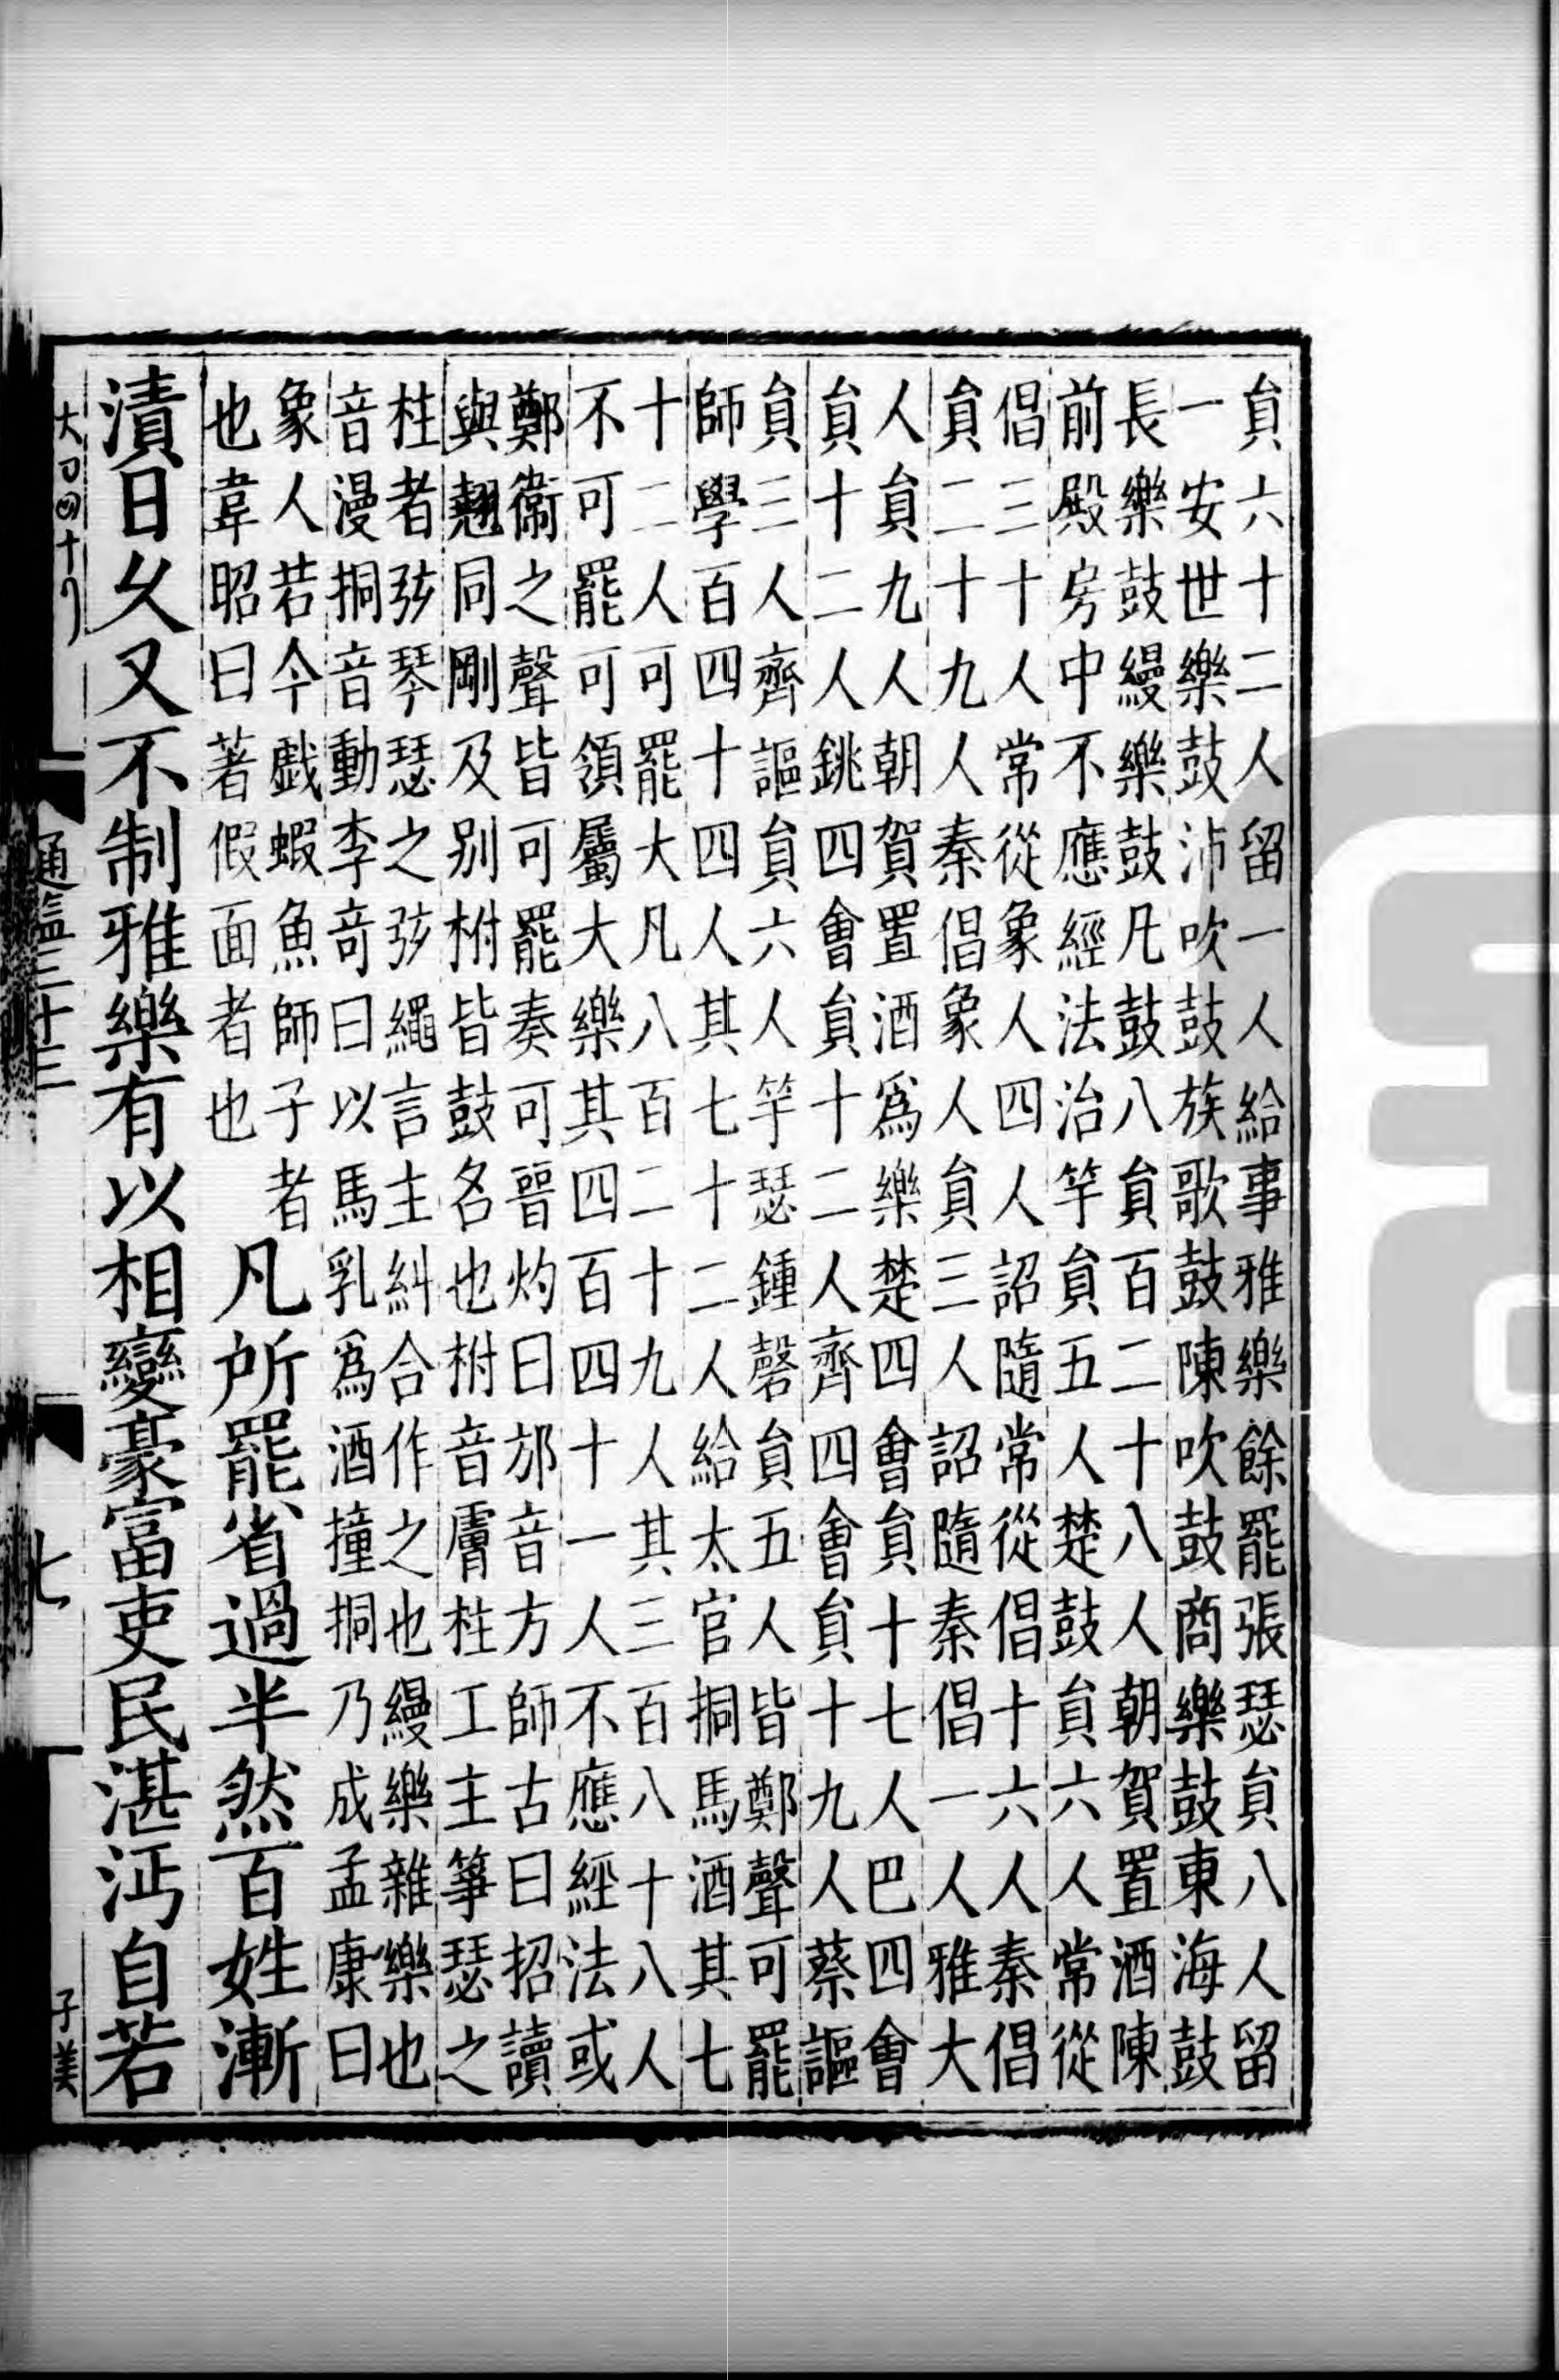 貟六十二人留一人給事雅樂餘罷張瑟貟八人留
一安世樂鼓沛吹鼓族歌鼓陳吹鼓商樂鼓東海鼓
長樂鼓縵樂鼓凡鼓八貟百二十八人朝賀置酒陳
前殿房中不應經法治竽貟五人楚鼓貟六人常從
倡三十人常從象人四人詔隨常從倡十六人秦倡
貟二十九人秦倡象人貟三人詔隨秦倡一人雅大
人貟九人朝賀置酒爲樂楚四會貟十七人巴四會
貟十二人銚四會貟十二人齊四會貟十九人蔡謳
貟三人齊謳貟六人竽瑟鍾磬貟五人皆鄭聲可罷
師學百四十四人其七十二人給太官挏馬酒其七
十二人可罷大凡八百二十九人其三百八十八人
不可罷可領屬大樂其四百四十一人不應經法或
鄭衞之聲皆可罷奏可晉灼曰邡音方師古曰招讀
與翹同剛及别柎皆鼓名也柎音膚柱工主箏瑟之
柱者弦琴瑟之弦繩言主糾合作之也縵樂雜樂也
音漫挏音動李竒曰以馬乳爲酒撞挏乃成孟康曰
象人若今戯蝦魚師子者
也韋昭曰著假面者也
凡所罷省過半然百姓漸
漬日乆又不制雅樂有以相變豪富吏民湛沔自若
通鑑三十三
七
子美